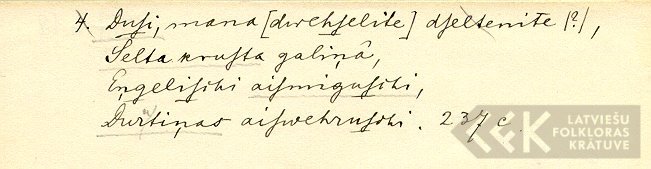 4. Duſi, mana [dwehſelite] dſeltenite (?),
Selta kruſta galiņâ,
Eņgeliſchi aiſmiguſchi,
Durtiņas aiſwehruſchi. 237 c.
LATVIEŠU
FOLKLORAS
KRĀTUVE